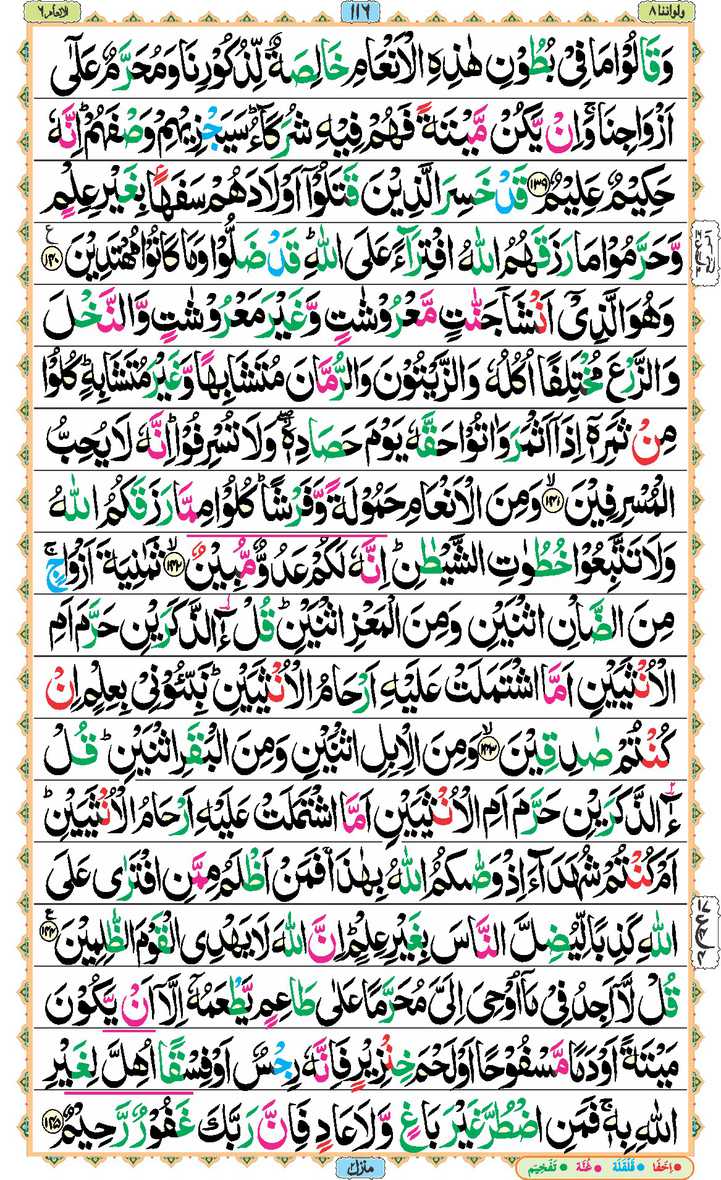 ولواننا ۸
۱۱۶
الانعام ٦
وَقَالُوۡا مَا فِىۡ بُطُوۡنِ هٰذِهِ الۡاَنۡعَامِ خَالِصَةٌ لِّذُكُوۡرِنَا وَمُحَرَّمٌ عَلٰٓى
اَزۡوَاجِنَا‌ ۚ وَاِنۡ يَّكُنۡ مَّيۡتَةً فَهُمۡ فِيۡهِ شُرَكَآءُ‌ ؕ سَيَجۡزِيۡهِمۡ وَصۡفَهُمۡ‌ ؕ اِنَّهٗ
حَكِيۡمٌ عَلِيۡمٌ ﴿۱۳۹﴾ قَدۡ خَسِرَ الَّذِيۡنَ قَتَلُوۡۤا اَوۡلَادَهُمۡ سَفَهًۢا بِغَيۡرِ عِلۡمٍ
وَّحَرَّمُوۡا مَا رَزَقَهُمُ اللّٰهُ افۡتِرَآءً عَلَى اللّٰهِ‌ ؕ قَدۡ ضَلُّوۡا وَمَا كَانُوۡا مُهۡتَدِيۡنَ ﴿۱۴۰﴾ ع
وَهُوَ الَّذِىۡۤ اَنۡشَاَ جَنّٰتٍ مَّعۡرُوۡشٰتٍ وَّغَيۡرَ مَعۡرُوۡشٰتٍ وَّالنَّخۡلَ
وَالزَّرۡعَ مُخۡتَلِفًا اُكُلُهٗ وَالزَّيۡتُوۡنَ وَالرُّمَّانَ مُتَشَابِهًا وَّغَيۡرَ مُتَشَابِهٍ‌ ؕ كُلُوۡا
مِنۡ ثَمَرِهٖۤ اِذَاۤ اَثۡمَرَ وَاٰتُوۡا حَقَّهٗ يَوۡمَ حَصَادِهٖ‌ ۖ وَلَا تُسۡرِفُوۡا‌ ؕ اِنَّهٗ لَا يُحِبُّ
الۡمُسۡرِفِيۡنَ ۙ ﴿۱۴۱﴾ وَمِنَ الۡاَنۡعَامِ حَمُوۡلَةً وَّفَرۡشًا‌ ؕ كُلُوۡا مِمَّا رَزَقَكُمُ اللّٰهُ
وَلَا تَتَّبِعُوۡا خُطُوٰتِ الشَّيۡطٰنِ‌ ؕ اِنَّهٗ لَكُمۡ عَدُوٌّ مُّبِيۡنٌ ۙ ﴿۱۴۲﴾ ثَمٰنِيَةَ اَزۡوَاجٍ‌ ۚ
مِنَ الضَّاۡنِ اثۡنَيۡنِ وَمِنَ الۡمَعۡزِ اثۡنَيۡنِ‌ ؕ قُلۡ ءٰٓالذَّكَرَيۡنِ حَرَّمَ اَمِ
الۡاُنۡثَيَيۡنِ اَمَّا اشۡتَمَلَتۡ عَلَيۡهِ اَرۡحَامُ الۡاُنۡثَيَيۡنِ‌ ؕ نَبِّـــُٔوۡنِىۡ بِعِلۡمٍ اِنۡ
كُنۡتُمۡ صٰدِقِيۡنَ ۙ ﴿۱۴۳﴾ وَمِنَ الۡاِبِلِ اثۡنَيۡنِ وَمِنَ الۡبَقَرِ اثۡنَيۡنِ‌ ؕ قُلۡ
ءٰٓالذَّكَرَيۡنِ حَرَّمَ اَمِ الۡاُنۡثَيَيۡنِ اَمَّا اشۡتَمَلَتۡ عَلَيۡهِ اَرۡحَامُ الۡاُنۡثَيَيۡنِ‌ ؕ
اَمۡ كُنۡتُمۡ شُهَدَآءَ اِذۡ وَصّٰٮكُمُ اللّٰهُ بِهٰذَا‌ ۚ فَمَنۡ اَظۡلَمُ مِمَّنِ افۡتَرٰى عَلَى
اللّٰهِ كَذِبًا لِّيُضِلَّ النَّاسَ بِغَيۡرِ عِلۡمٍ‌ ؕ اِنَّ اللّٰهَ لَا يَهۡدِى الۡقَوۡمَ الظّٰلِمِيۡنَ ﴿۱۴۴﴾ ع
قُلْ لَّاۤ اَجِدُ فِىۡ مَاۤ اُوۡحِىَ اِلَىَّ مُحَرَّمًا عَلٰى طَاعِمٍ يَّطۡعَمُهٗۤ اِلَّاۤ اَنۡ يَّكُوۡنَ
مَيۡتَةً اَوۡ دَمًا مَّسۡفُوۡحًا اَوۡ لَحۡمَ خِنۡزِيۡرٍ فَاِنَّهٗ رِجۡسٌ اَوۡ فِسۡقًا اُهِلَّ لِغَيۡرِ
اللّٰهِ بِهٖ‌ ۚ فَمَنِ اضۡطُرَّ غَيۡرَ بَاغٍ وَّلَا عَادٍ فَاِنَّ رَبَّكَ غَفُوۡرٌ رَّحِيۡمٌ ﴿۱۴۵﴾
منزل ۲
اِخفَا قَلْقَلَة غُنَّه تَفخِيم